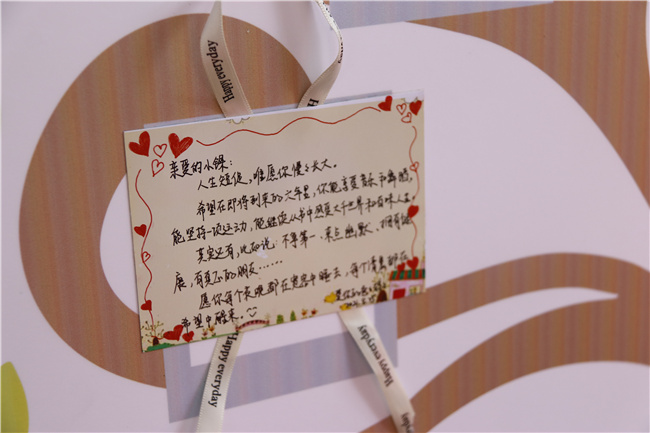 Happy everyday
亲爱的小锞：
人生短促，唯愿你慢慢长大。
希望在即将到来的六年里，你能享受音乐和舞蹈，
能坚持一项运动，能继续从书中感受大千世界和百味人生。
其实还有，比如说：不争第一、来点幽默、拥有
展，有真正的朋友……
愿你每个夜晚都在宽容中睡去，每个清晨都在
希望中醒来。
爱你的
Happy everyday
Happy everyday